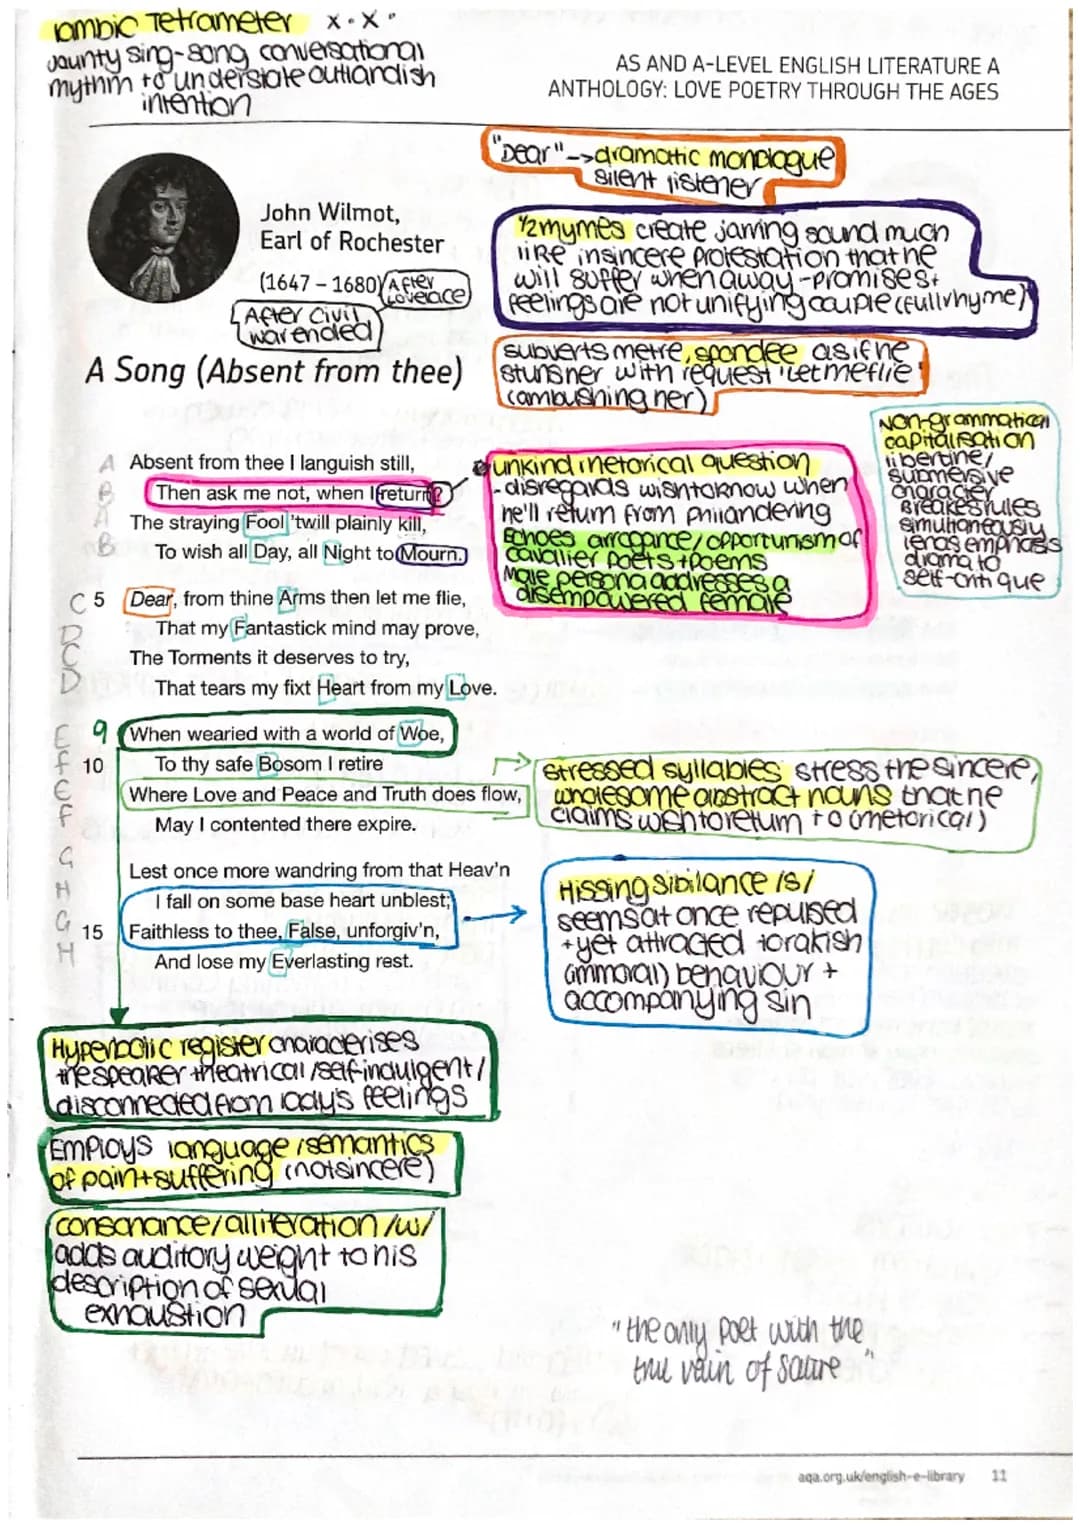 iambic Tetrameter x • x •
Jaunty sing-song, conversational
rhythm to understate outlandish
intention
AS AND A-LEVEL ENGLISH LITERATURE A
ANTHOLOGY: LOVE POETRY THROUGH THE AGES
"Dear" -> dramatic monologue
silent listener
John Wilmot,
Earl of Rochester
(1647 – 1680)
After
Lovelace
After Civil
war ended
1/2 rhymes create jarring sound much
like insincere protestation that he
will suffer when away - promises +
feelings are not unifying couple (full rhyme)
subverts metre, spondee as if he
stuns her with request 'let me flie'
(ambushing her)
A Song (Absent from thee)
Non-grammatical
capitalisation
libertine/
submersive
character
Breakes rules
simultaneously
lends emphasis
drama to
self-critique
unkind rhetorical question
- disregards wish to know when
he'll return from philandering
Echoes arrogance/opportunism of
cavalier poets + poems
Male persona addresses a
disempowered female
A Absent from thee I languish still,
B Then ask me not, when I return?
A The straying Fool 'twill plainly kill,
B To wish all Day, all Night to Mourn.
C 5 Dear, from thine Arms then let me flie,
D That my Fantastick mind may prove,
C The Torments it deserves to try,
D That tears my fixt Heart from my Love.
E 9 When wearied with a world of Woe,
F 10 To thy safe Bosom I retire
E Where Love and Peace and Truth does flow,
F May I contented there expire.
stressed syllables stress the sincere,
wholesome abstract nouns that he
claims wish to return to (rhetorical)
G Lest once more wandring from that Heav'n
H I fall on some base heart unblest;
G 15 Faithless to thee, False, unforgiv'n,
H And lose my Everlasting rest.
Hissing sibilance /s/
seems at once repulsed
+ yet attracted to rakish
(immoral) behaviour +
accompanying sin
Hyperbolic register characterises
the speaker theatrical/self-indulgent/
disconnected from lady's feelings
Employs language/semantics
of pain + suffering (not sincere)
consonance/alliteration /w/
adds auditory weight to his
description of sexual
exhaustion
"the only poet with the
true vein of satire"
aqa.org.uk/english-e-library 11